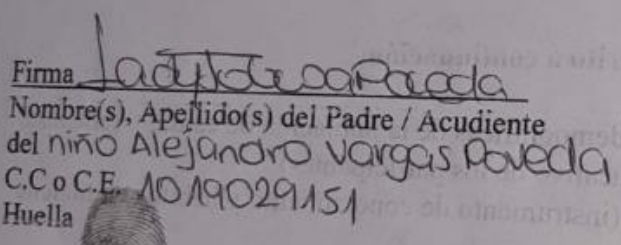 Firma Lady
Nombre(s), Apellido(s) del Padre / Acudiente
del niño Alejandro Vargas Poveda
C.C o C.E. 1019029151
Huella